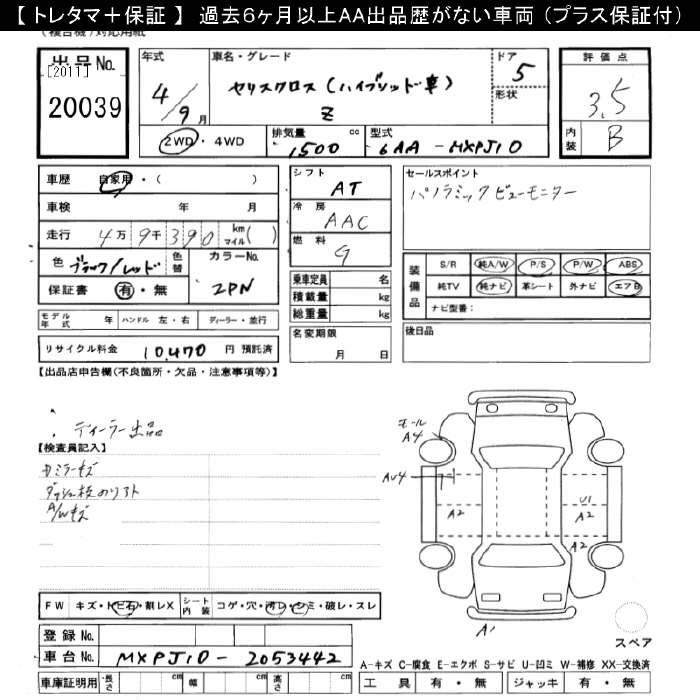 【 トレタマ＋保証 】 過去６ヶ月以上AA出品歴がない車両（プラス保証付）
出品No.
[2011]
20039
年式
4/9月
車名・グレード
ヤリスクロス（ハイブリッド車）
Z
ドア
5
形状
評価点
3.5
内装 B
2WD・4WD
排気量 1500 cc
型式 6AA-MXPJ10
車歴 自家用・（ ）
車検 年 月
走行 4万9千390 km マイル( )
色 ブラック/レッド
色替
カラーNo.
2PN
保証書 有・無
シフト
AT
冷房
AAC
燃料
G
乗車定員 名
積載量 kg
総重量 kg
セールスポイント
パノラミックビューモニター
装備品
S/R 純A/W P/S P/W ABS
純TV 純ナビ 革シート 外ナビ エアB
ナビ型番：
モデル年式 年 ハンドル 左・右 ディーラー・並行
リサイクル料金 10,470 円 預託済
名変期限
月 日
後日品
【出品店申告欄(不良箇所・欠品・注意事項等)】
ディーラー出品
【検査員記入】
A/Wキズ
モール
A4
A2
U1
A2
A2
A1
スペア
FW キズ・トビ石・割レX
シート内装 コゲ・穴・汚レ・シミ・破レ・スレ
登録 No.
車台 No. MXPJ10-2053442
車庫証明用 長さ cm 幅 cm 高さ cm
A-キズ C-腐食 E-エクボ S-サビ U-凹ミ W-補修 XX-交換済
工具 有・無 ジャッキ 有・無